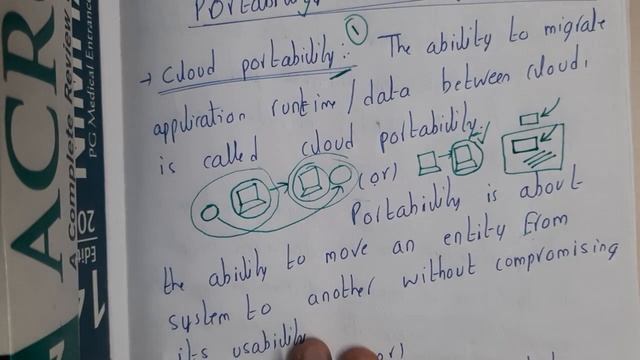 Portability
→ Cloud portability :- ① The ability to migrate
application runtime / data between cloud,
is called cloud portability.
(or)
Portability is about
the ability to move an entity from
system to another without compromising
its usability
or)
ACR
A Complete Review
PG Medical Entranc
20
Editi